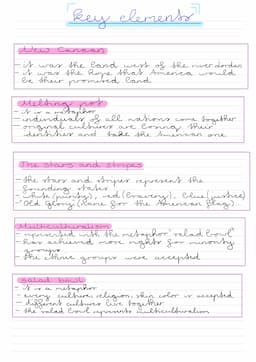 key elements
New Canaan
- it was the land west of the river Jordan
- it was the hope that America would
be their promised land
Melting pot
- it is a metaphor
- individuals of all nations come together
- original cultures are losing their
identities and take the American one
The stars and stripes
- the stars and stripes represent the
founding states
- white (purity), red (bravery), blue (justice)
- "Old Glory" (name for the American flag)
Multiculturalism
- represented with the metaphor "salad bowl"
- has achieved more rights for minority
groups
- the ethnic groups were accepted
salad bowl
- it is a metaphor
- every culture, religion, skin color is accepted
- different cultures live together
- the salad bowl represents multiculturalism